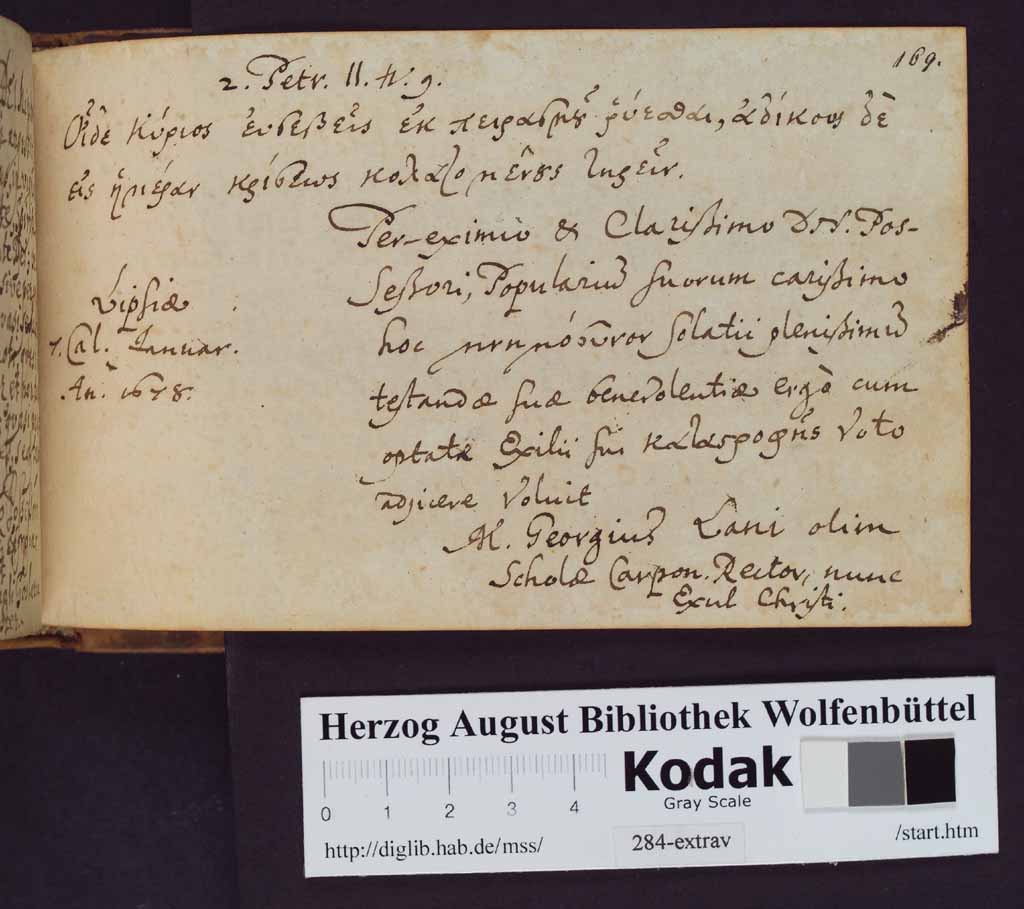 169.
2. Petr. II. ν. 9.
Οἶδε Κύριος ἐυσεβεῖς ἐκ πειρασμοῦ ῥύεσθαι, ἀδίκους δὲ
εἰς ἡμέραν κρίσεως κολαζομένους τηρεῖν.
Per-eximio & Clarißimo Dn. Pos-
seßori, Popularium suorum carißimo
hoc μνημόσυνον solatii plenißimum
testandæ suæ benevolentiæ ergò cum
optatæ Exilii sui καταστροφῆς voto
adjicere voluit
M. Georgius Lani olim
Scholæ Carpon. Rector, nunc
Exul Christi.
Lipsiæ
7. Cal. Januar.
An. 1678.
Herzog August Bibliothek Wolfenbüttel
Kodak
Gray Scale
0 1 2 3 4
http://diglib.hab.de/mss/ 284-extrav /start.htm